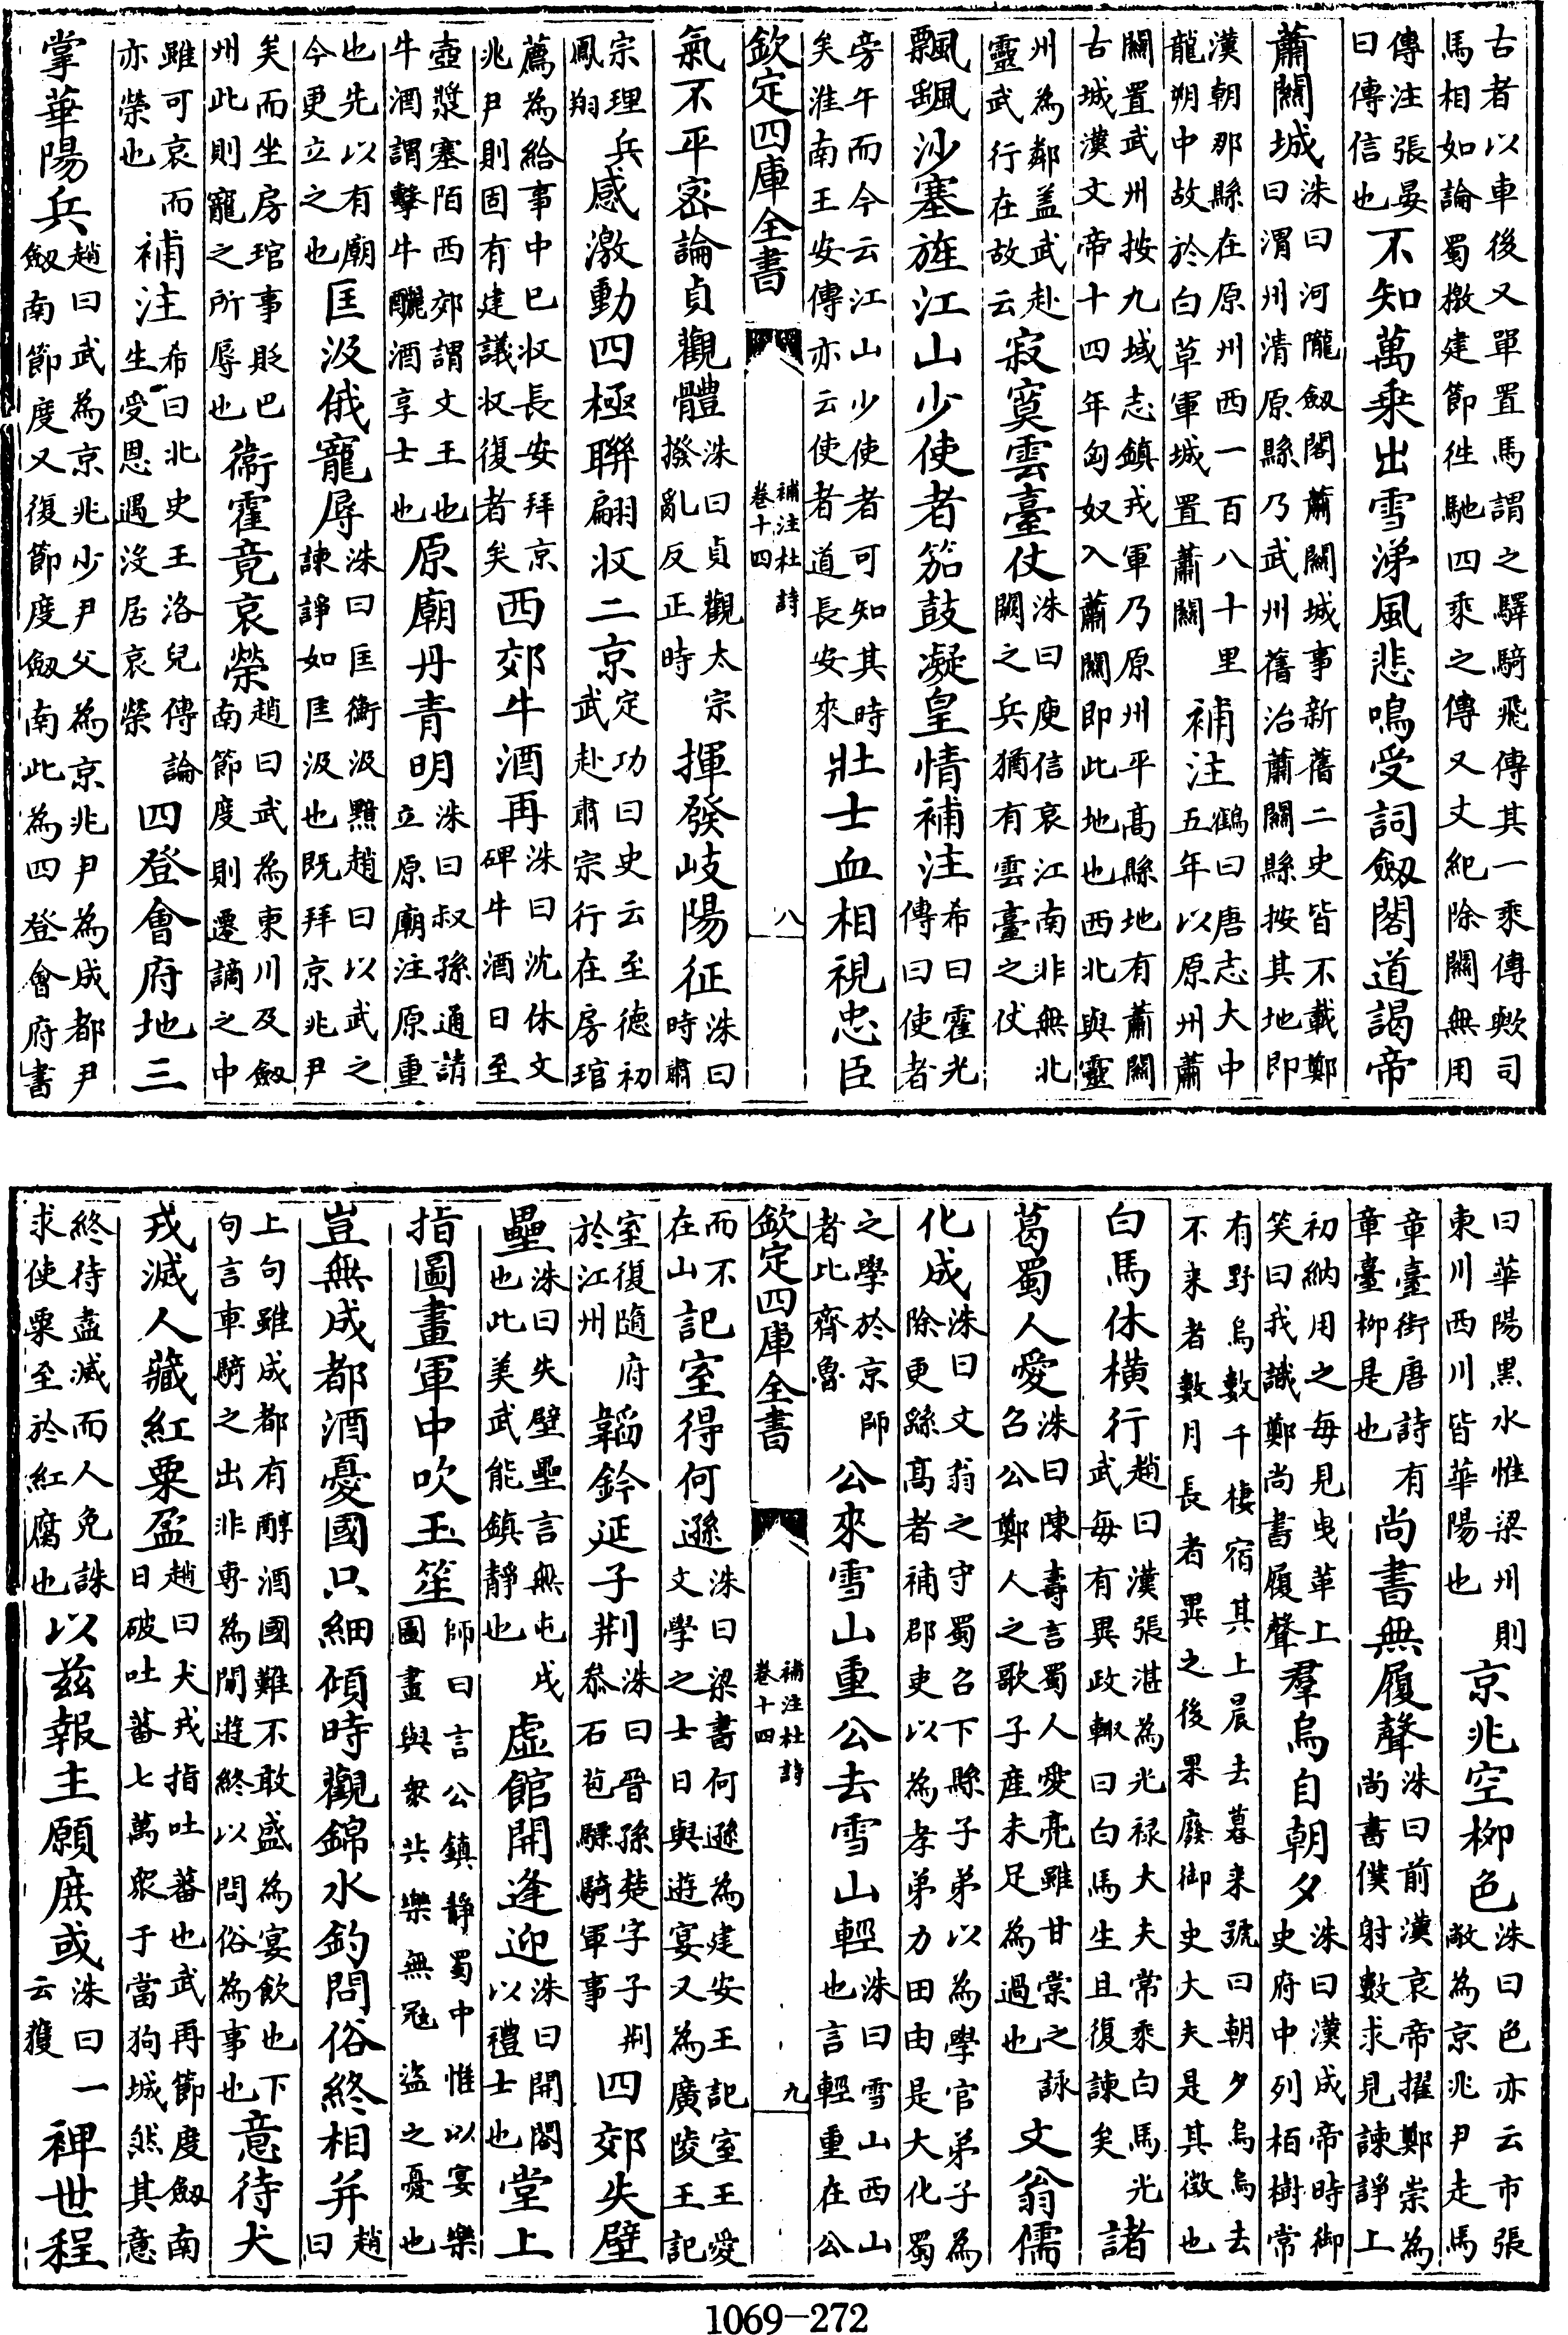 古者以車後又單置馬謂之驛騎飛傳其一乘傳歟司
馬相如論蜀檄建節徃馳四乘之傳又文紀除關無用
傳注張晏曰傳信也不知萬乘出雪涕風悲鳴受詞劔閣道謁帝
蕭關城洙曰河隴劔閣蕭關城事新舊二史皆不載鄭曰渭州清原縣乃武州舊治蕭關縣按其地即
漢朝那縣在原州西一百八十里龍朔中故於白草軍城置蕭關補注鶴曰唐志大中五年以原州蕭
關置武州按九域志鎮戎軍乃原州平髙縣地有蕭關
古城漢文帝十四年匈奴入蕭關即此地也西北與靈
州為鄰盖武赴靈武行在故云寂寞雲臺仗洙曰庾信哀江南非無北闕之兵猶有雲臺之仗
飄飄沙塞旌江山少使者笳鼓凝皇情補注希曰霍光傳曰使者
旁午而今云江山少使者可知其時矣淮南王安傳亦云使者道長安來壯士血相視忠臣
欽定四庫全書
補注杜詩
卷十四
八
氣不平宻論貞觀體洙曰貞觀太宗撥亂反正時揮發岐陽征洙曰時肅
宗理兵鳳翔感激動四極聯翩收二京定功曰史云至德初武赴肅宗行在房琯
薦為給事中已收長安拜京兆尹則固有建議收復者矣西郊牛酒再洙曰沈休文碑牛酒日至
壺漿塞陌西郊謂文王也牛酒謂擊牛釃酒享士也原廟丹青明洙曰叔孫通請立原廟注原重
也先以有廟今更立之也匡汲俄寵辱洙曰匡衡汲黯趙曰以武之諫諍如匡汲也既拜京兆尹
矣而坐房琯事貶巴州此則寵之所辱也衞霍竟哀榮趙曰武為東川及劔南節度則遷謫之中
雖可哀而亦榮也補注希曰北史王洛兒傳論生受恩遇沒居哀榮四登會府地三
掌華陽兵趙曰武為京兆少尹父為京兆尹為成都尹劔南節度又復節度劔南此為四登會府書
曰華陽黑水惟梁州則東川西川皆華陽也京兆空栁色洙曰色亦云市張敞為京兆尹走馬
章臺街唐詩有章臺栁是也尚書無履聲洙曰前漢哀帝擢鄭崇為尚書僕射數求見諫諍上
初納用之毎見曳革上笑曰我識鄭尚書履聲羣烏自朝夕洙曰漢成帝時御史府中列栢樹常
有野烏數千棲宿其上晨去暮来號曰朝夕烏烏去
不来者數月長者異之後果廢御史大夫是其徴也
白馬休橫行趙曰漢張湛為光禄大夫常乘白馬光武毎有異政輙曰白馬生且復諫矣諸
葛蜀人愛洙曰陳壽言蜀人愛亮雖甘棠之詠召公鄭人之歌子産未足為過也文翁儒
化成洙曰文翁之守蜀召下縣子弟以為學官弟子為除更繇髙者補郡吏以為孝弟力田由是大化蜀
之學於京師者比齊魯公來雪山重公去雪山輕洙曰雪山西山也言輕重在公
欽定四庫全書
補注杜詩
卷十四
九
而不在山記室得何遜洙曰梁書何遜為建安王記室王愛文學之士日與遊宴又為廣陵王記
室復隨府於江州韜鈐延子荆洙曰晉孫楚字子荆叅石苞驃騎軍事四郊失壁
壘洙曰失壁壘言無屯戍也此美武能鎮靜也虛館開逢迎洙曰開閤以禮士也堂上
指圖畫軍中吹玉笙師曰言公鎮靜蜀中惟以宴樂圖畫與衆共樂無冦盜之憂也
豈無成都酒憂國只細傾時觀錦水釣問俗終相并趙曰
上句雖成都有醇酒國難不敢盛為宴飲也下句言車騎之出非專為閒遊終以問俗為事也意待犬
戎滅人藏紅粟盈趙曰犬戎指吐蕃也武再節度劔南日破吐蕃七萬衆于當狗城然其意
終待盡滅而人免誅求使粟至於紅腐也以兹報主願庶或洙曰一云獲裨世程
1069-272